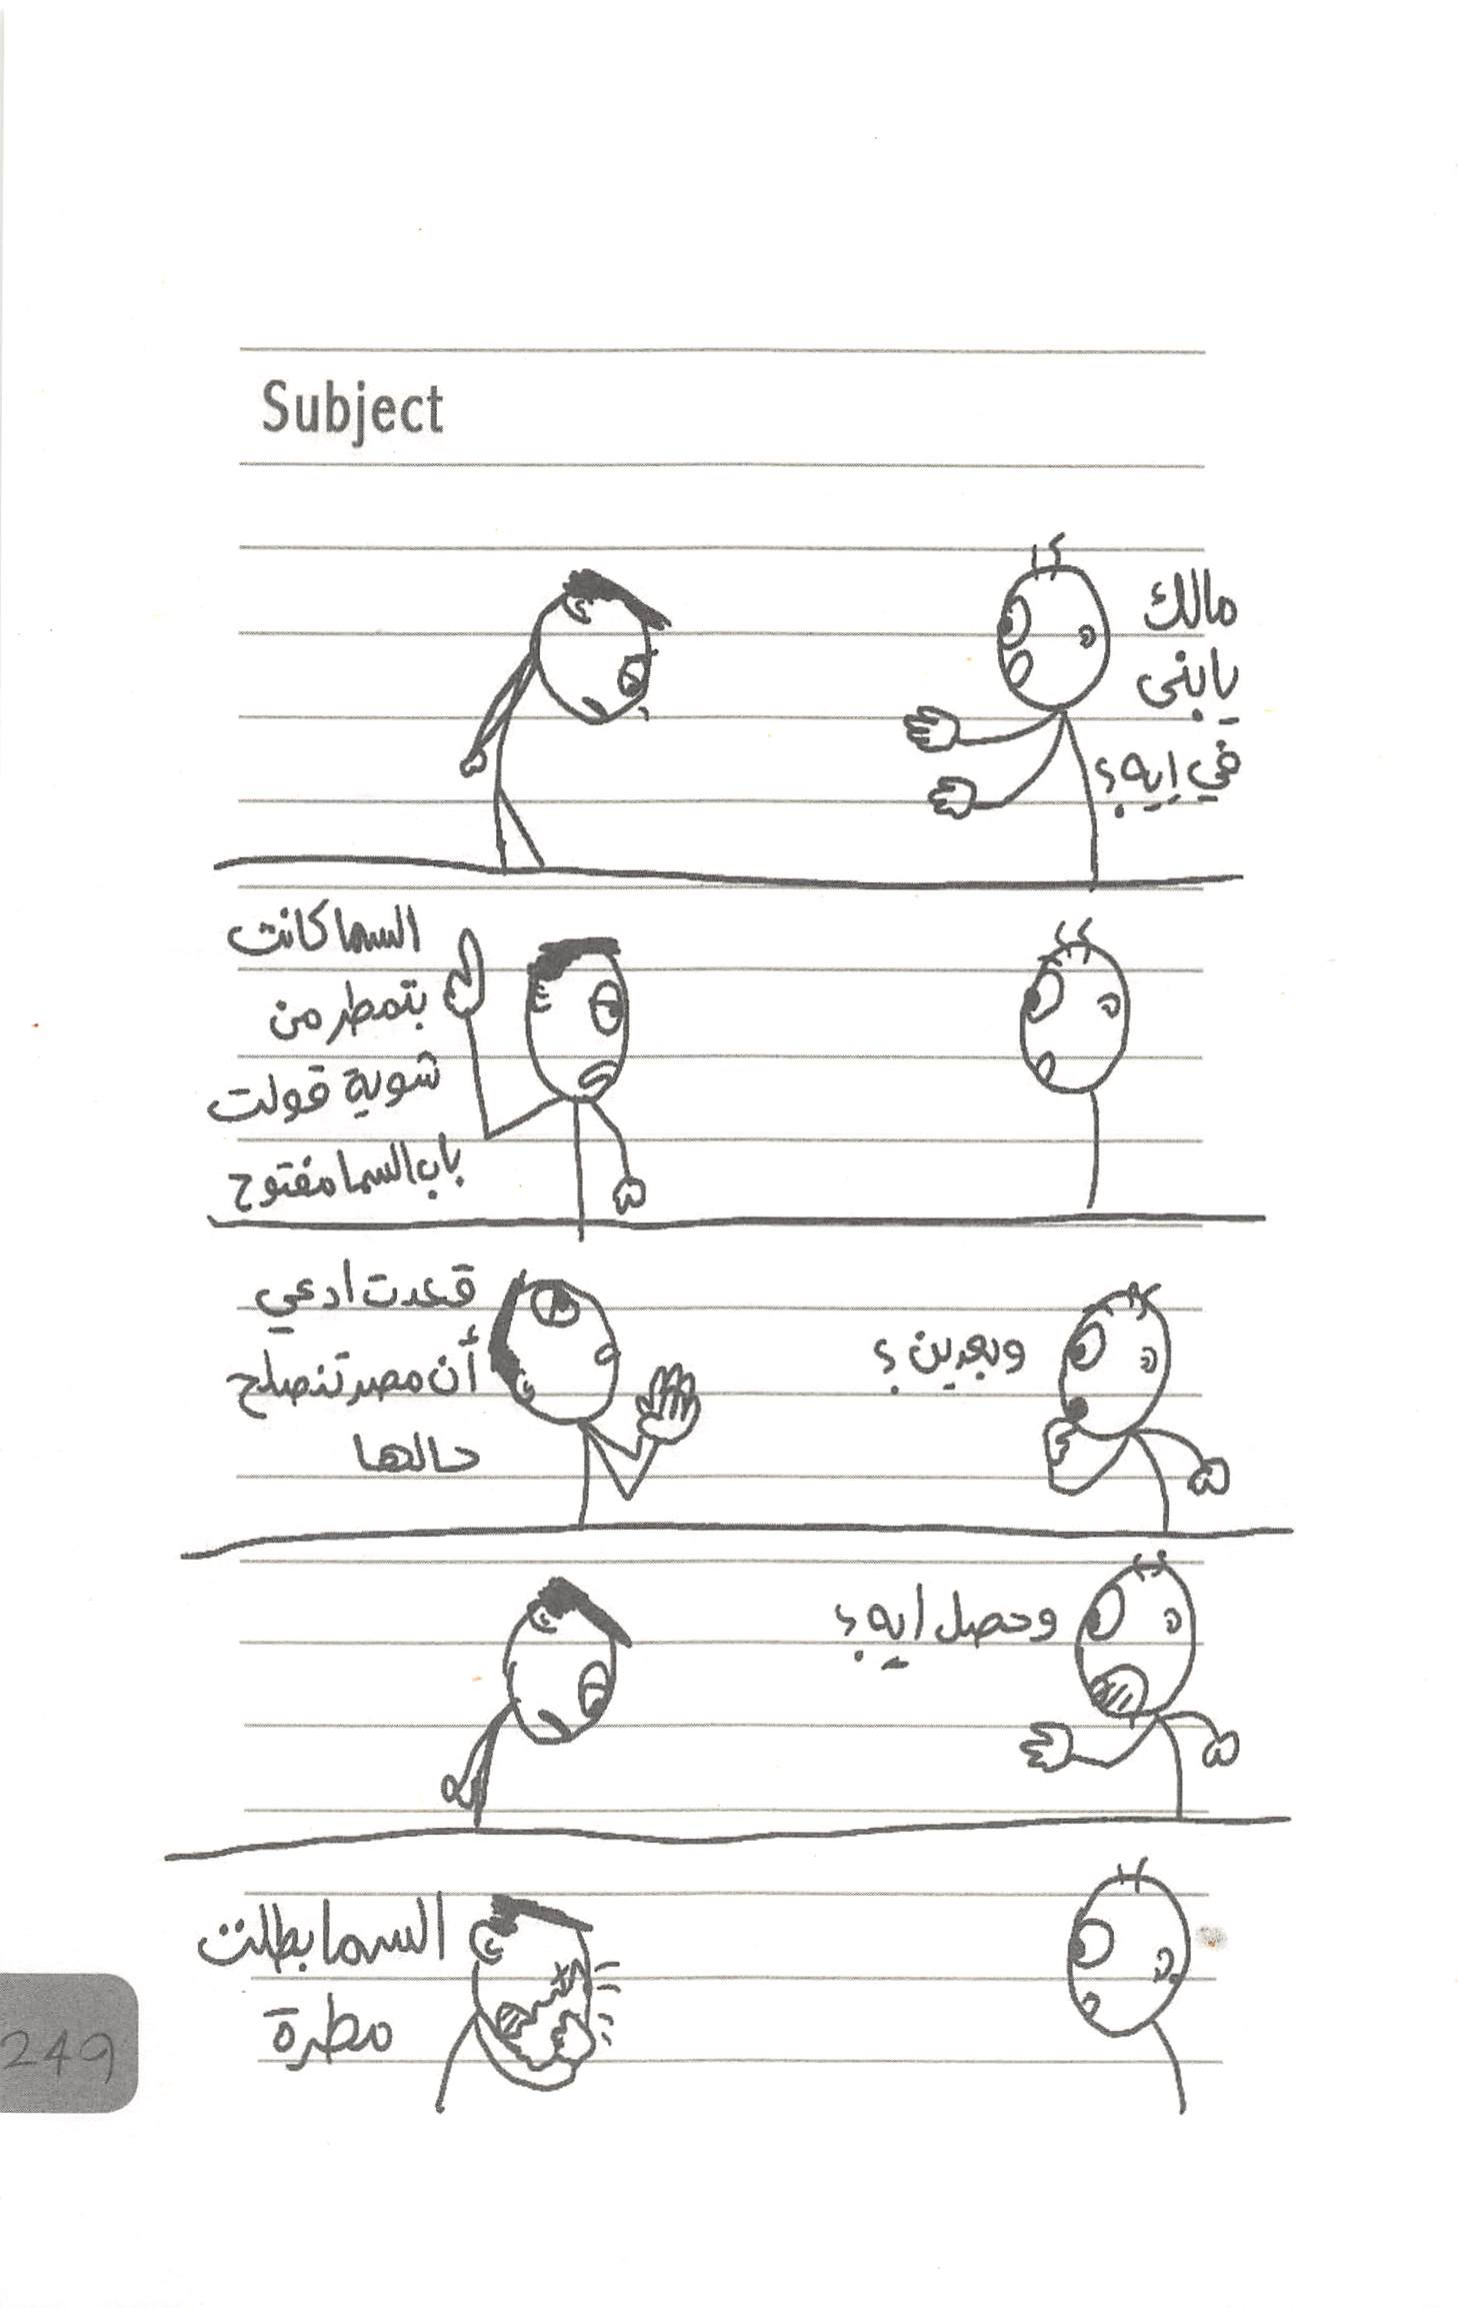 Subject
مالك
يابني
في إيه؟
السما كانت
بتمطر من
شوية قولت
باب السما مفتوح
وبعدين؟
قعدت ادعي
أن مصر تنصلح
حالها
وحصل ايه؟
السما بطلت
مطرة
249